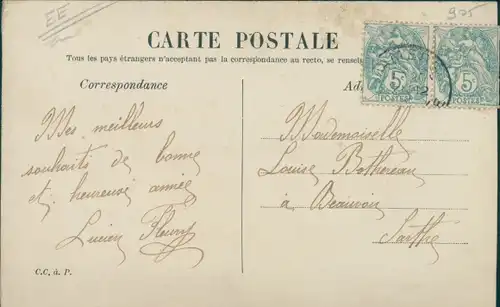 EE
925
CARTE POSTALE
Tous les pays étrangers n'acceptant pas la correspondance au recto, se renseig
Correspondance
Ad
5
POSTES
5
POSTES
Mes meilleurs
souhaits de bonne
et heureuse année
Lucien Fleury
Mademoiselle
Louise Bothereau
à Beauvoir
Sarthe
C.C. à. P.